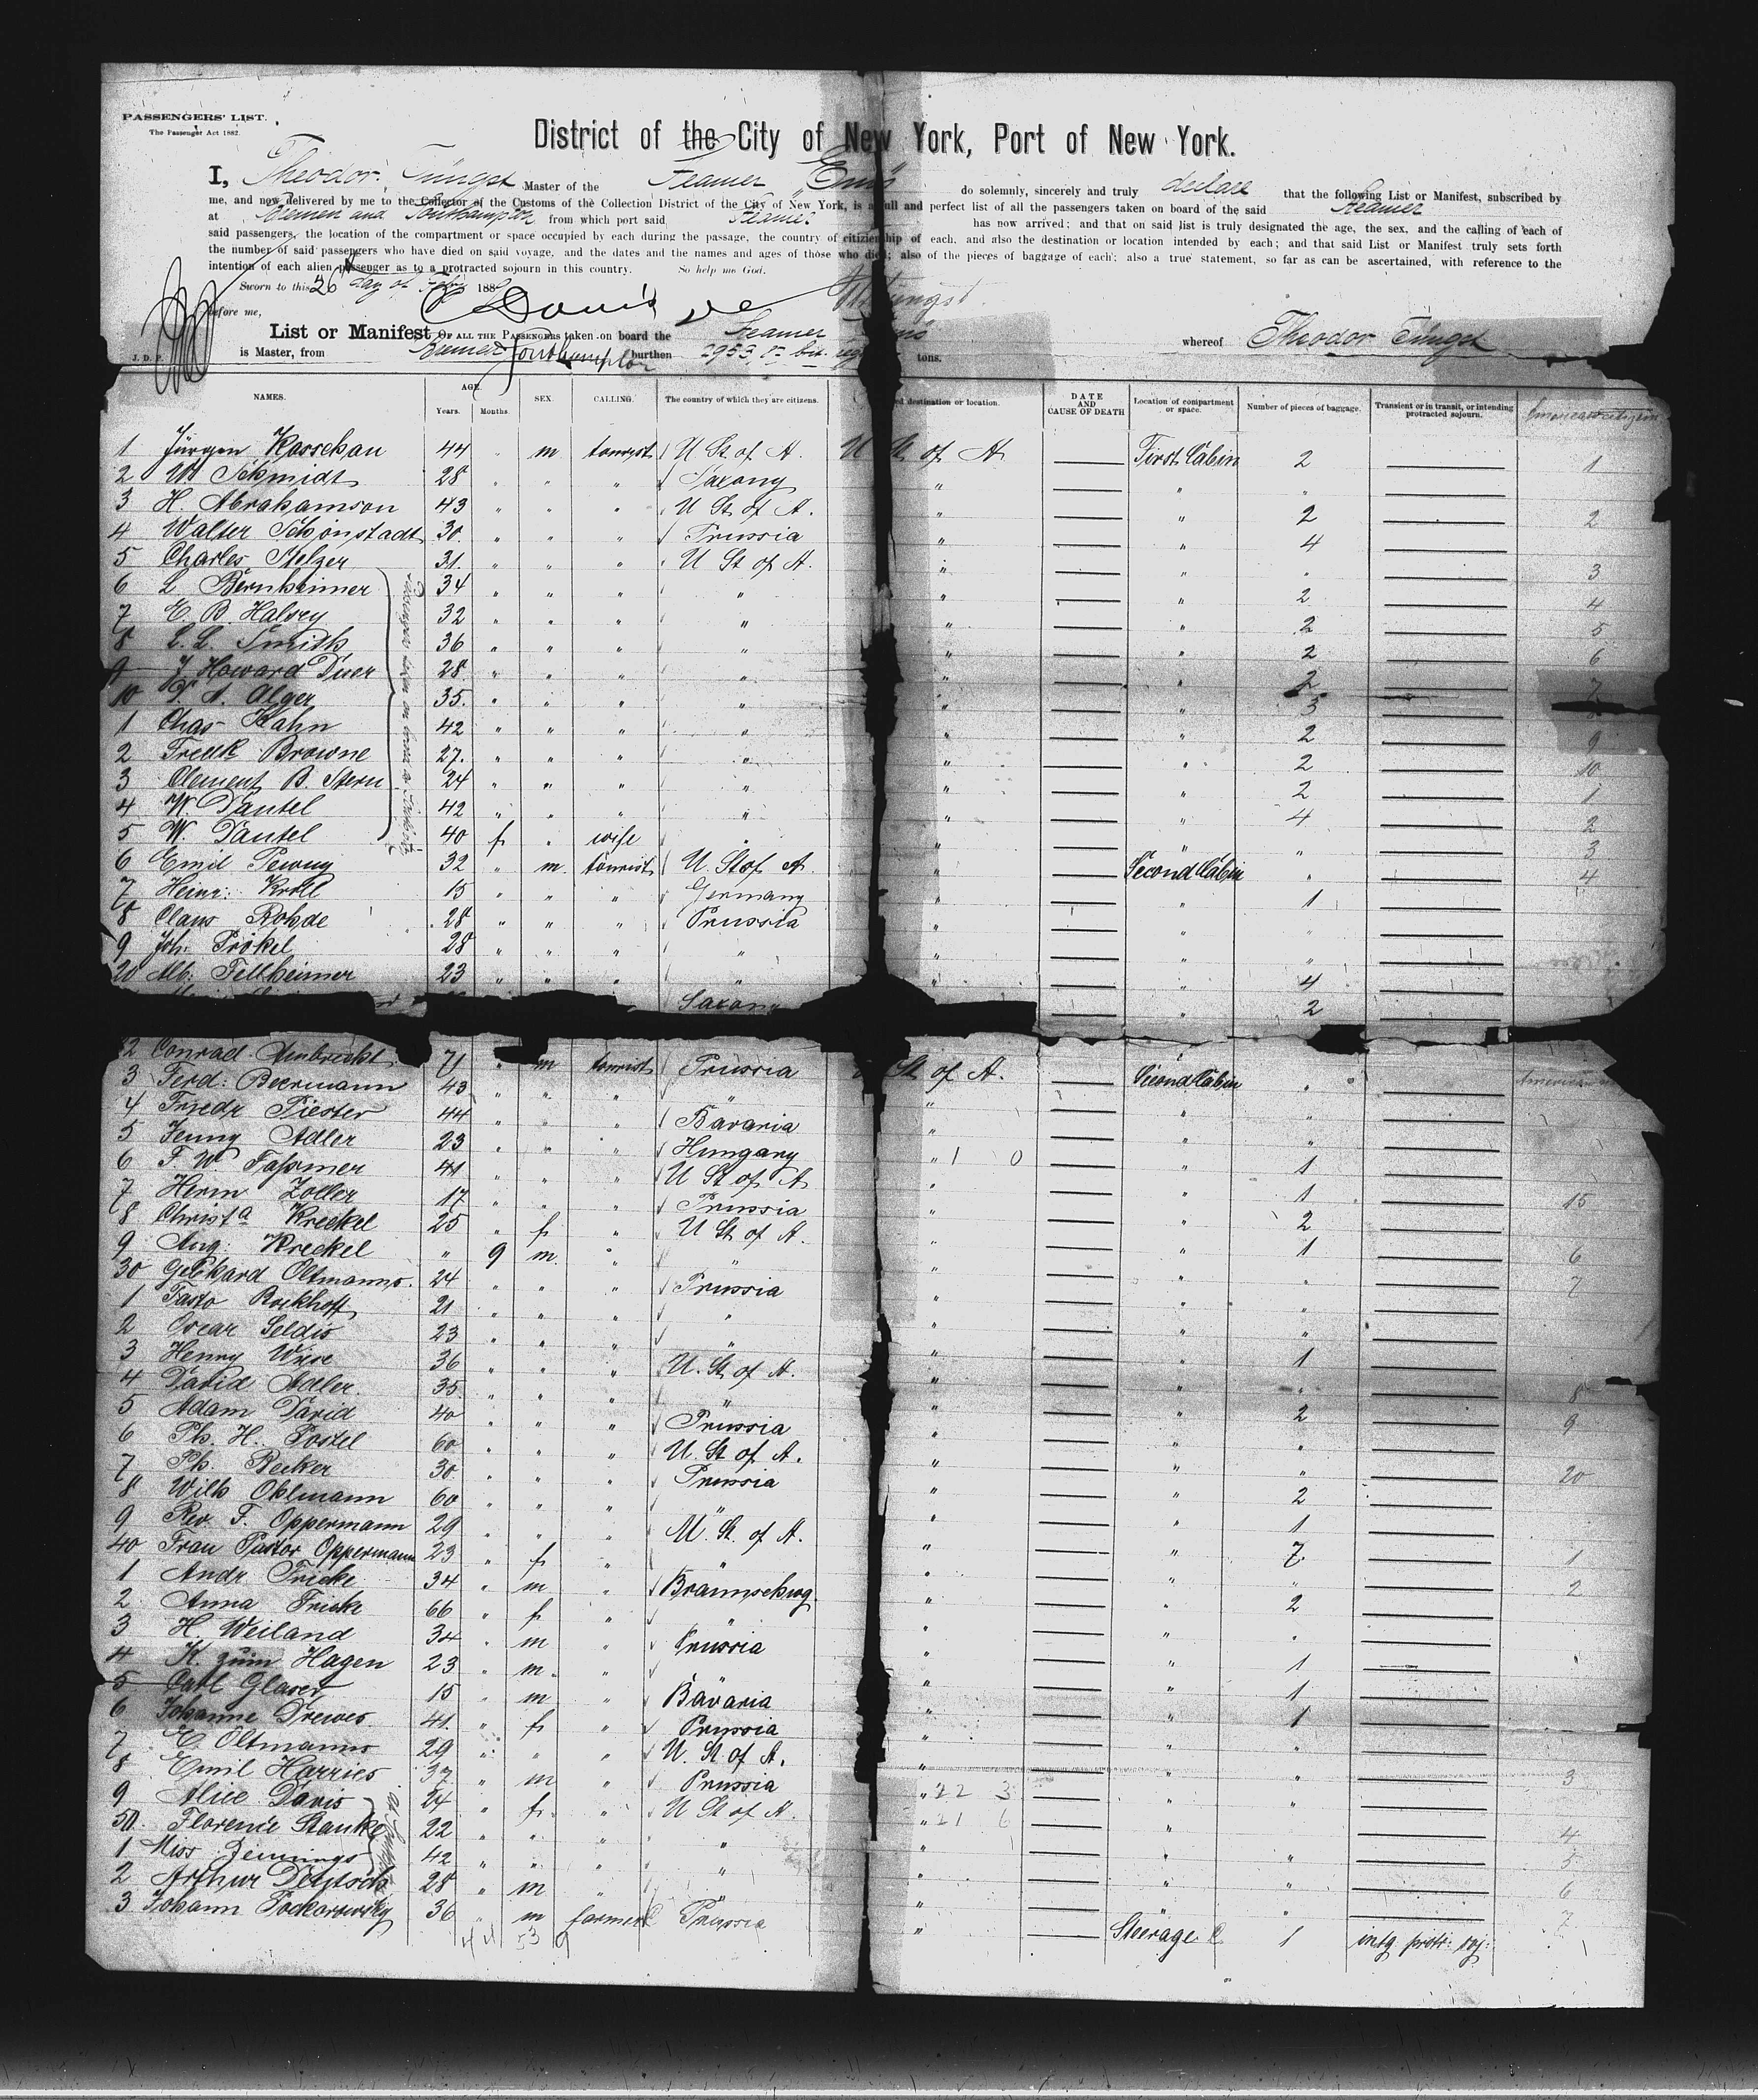 PASSENGERS' LIST.
The Passenger Act 1882.
District of the City of New York, Port of New York.
I, Theodor Jüngst Master of the Steamer "Ems" do solemnly, sincerely and truly declare that the following List or Manifest, subscribed by
me, and now delivered by me to the Collector of the Customs of the Collection District of the City of New York, is a full and perfect list of all the passengers taken on board of the said Steamer
at Bremen and Southampton from which port said Steamer has now arrived; and that on said list is truly designated the age, the sex, and the calling of each of
said passengers, the location of the compartment or space occupied by each during the passage, the country of citizenship of each, and also the destination or location intended by each; and that said List or Manifest truly sets forth
the number of said passengers who have died on said voyage, and the dates and the names and ages of those who died; also of the pieces of baggage of each; also a true statement, so far as can be ascertained, with reference to the
intention of each alien passenger as to a protracted sojourn in this country. So help me God.
Sworn to this 26 day of Feby 188
before me,
List or Manifest OF ALL THE PASSENGERS taken on board the Steamer Ems whereof Theodor Jüngst
J. D. P. is Master, from Bremen Southampton burthen 2953 tons.
NAMES. AGE. Years. Months. SEX. CALLING. The country of which they are citizens. destination or location. DATE AND CAUSE OF DEATH Location of compartment or space. Number of pieces of baggage. Transient or in transit, or intending protracted sojourn.
1 Jürgen Kasschau 44 " m tourist U St of A. U St of A First Cabin 2 1
2 W Schmidt 28 " " " Saxony " " "
3 H. Abrahamson 43 " " " U St of A. " " 2 2
4 Walter Schönstadt 30. " " " Prussia " " 4
5 Charles Stelzer 31. " " " U St of A. " " " 3
6 L Bernheimer 34 " " " " " " 2 4
7 E. B. Halsey 32 " " " " " " 2 5
8 E. L. Smith 36 " " " " " " 2 6
9 J Howard Duer 28. " " " " " " 2 7
10 A. Alger 35. " " " " " " 3
1 Chas Kahn 42 " " " " " " 2 9
2 Fredk Browne 27. " " " " " " 2 10
3 Clement B. Stern 24 " " " " " " 2 1
4 W. Dautel 42 " " " " " " 4 2
5 W Dautel 40 f " wife " " " " 3
6 Emil 32 " m tourist U. St of A " Second Cabin " 4
7 Heinr: Kroll 15 " " " Germany " " 1
8 Claus Rohde 28 " " " Prussia " " "
9 Joh: Prökel 28 " " " " " " "
20 Alb: Fellheimer 23 " " " " " " 4
Saxony 2
2 Conrad Ambrecht 71 " m tourist Prussia St of A. Second Cabin "
3 Ferd: Beermann 43 " " " " " " "
4 Friedr Piester 44 " " " Bavaria " " "
5 Jenny Adler 23 " " " Hungary " " 1
6 F. W. Fassmer 41 " " " U St of A " " 1 15
7 Herm Zoller 17 " " " Prussia " " 2
8 Christa Kreckel 25 " f " U St of A. " " 1 6
9 Aug: Kreckel " 9 m. " " " " " 7
30 Gebhard Oltmanns. 24 " " " Prussia " " "
1 Tasto Bockhoff 21 " " " " " " "
2 Oscar Seldis 23 " " " " " " 1
3 Henry Wiese 36 " " " U. St of A. " " " 8
4 David Adler. 35 " " " " " " 2 9
5 Adam David 40 " " " Prussia " " "
6 Ph. H. Postel 60 " " " U. St of A. " " " 20
7 Ph. Becker 30 " " " Prussia " " 2
8 Wilh Ohlmann 60 " " " " " " 1
9 Rev. F. Oppermann 29 " " " U. St. of A. " " 7. 1
40 Frau Pastor Oppermann 23 " f " " " " " 2
1 Andr Fricke 34 " m " Braunschwg. " " 2
2 Anna Fricke 66 " f " " " " "
3 H. Weiland 34 " m " Prussia " " 1
4 K. zum Hagen 23 " m. " " " " 1
5 Carl Glaser 15 " m " Bavaria " " 1
6 Johanne Drewes. 41. " f " Prussia " " "
7 E. Oltmanns 29 " " " U. St. of A. " " " 3
8 Emil Harries 37 " m " Prussia " " "
9 Alice Davis 24 " f. " U St of A. " " " 4
50. Florence Stanke 22 " " " " " " " 5
1 Miss Jennings 42 " " " " " " " 6
2 Arthur Deutsch 28 " m " " " " " 7
3 Johann Pockarowsky 36 " m farmer Prussia " Steerage 1 intg protr: soj: